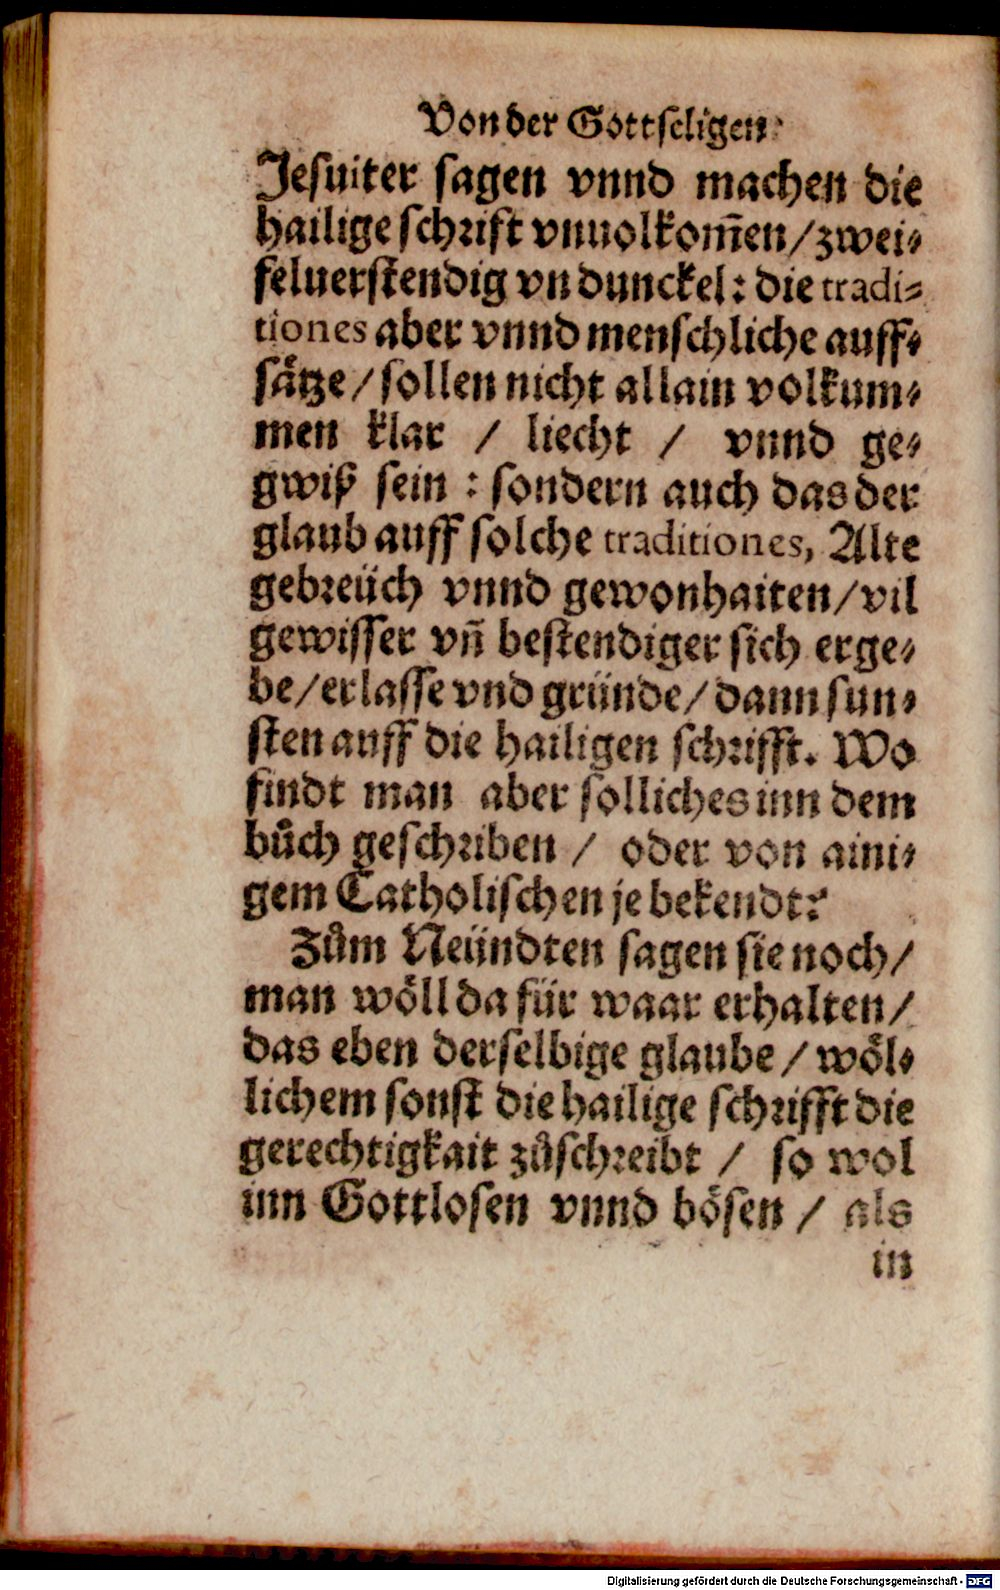 Von der Gottseligen
Jesuiter sagen vnnd machen die
hailige schrift vnuolkom̃en/zwei⸗
feluerstendig vn dunckel: die tradi⸗
tiones aber vnnd menschliche auff⸗
sätze/sollen nicht allain volkum⸗
men klar / liecht / vnnd ge⸗
gwiß sein : sondern auch das der
glaub auff solche traditiones, Alte
gebreüch vnnd gewonhaiten/vil
gewisser vñ bestendiger sich erge⸗
be/erlasse vnd gründe/dann sun⸗
sten auff die hailigen schrifft. Wo
findt man aber solliches inn dem
bůch geschriben / oder von aini⸗
gem Catholischen je bekendt?
Zům Neündten sagen sie noch/
man wöll da für waar erhalten/
das eben derselbige glaube/wöl⸗
lichem sonst die hailige schrifft die
gerechtigkait zůschreibt / so wol
inn Gottlosen vnnd bösen / als
in
Digitalisierung gefördert durch die Deutsche Forschungsgemeinschaft - DFG